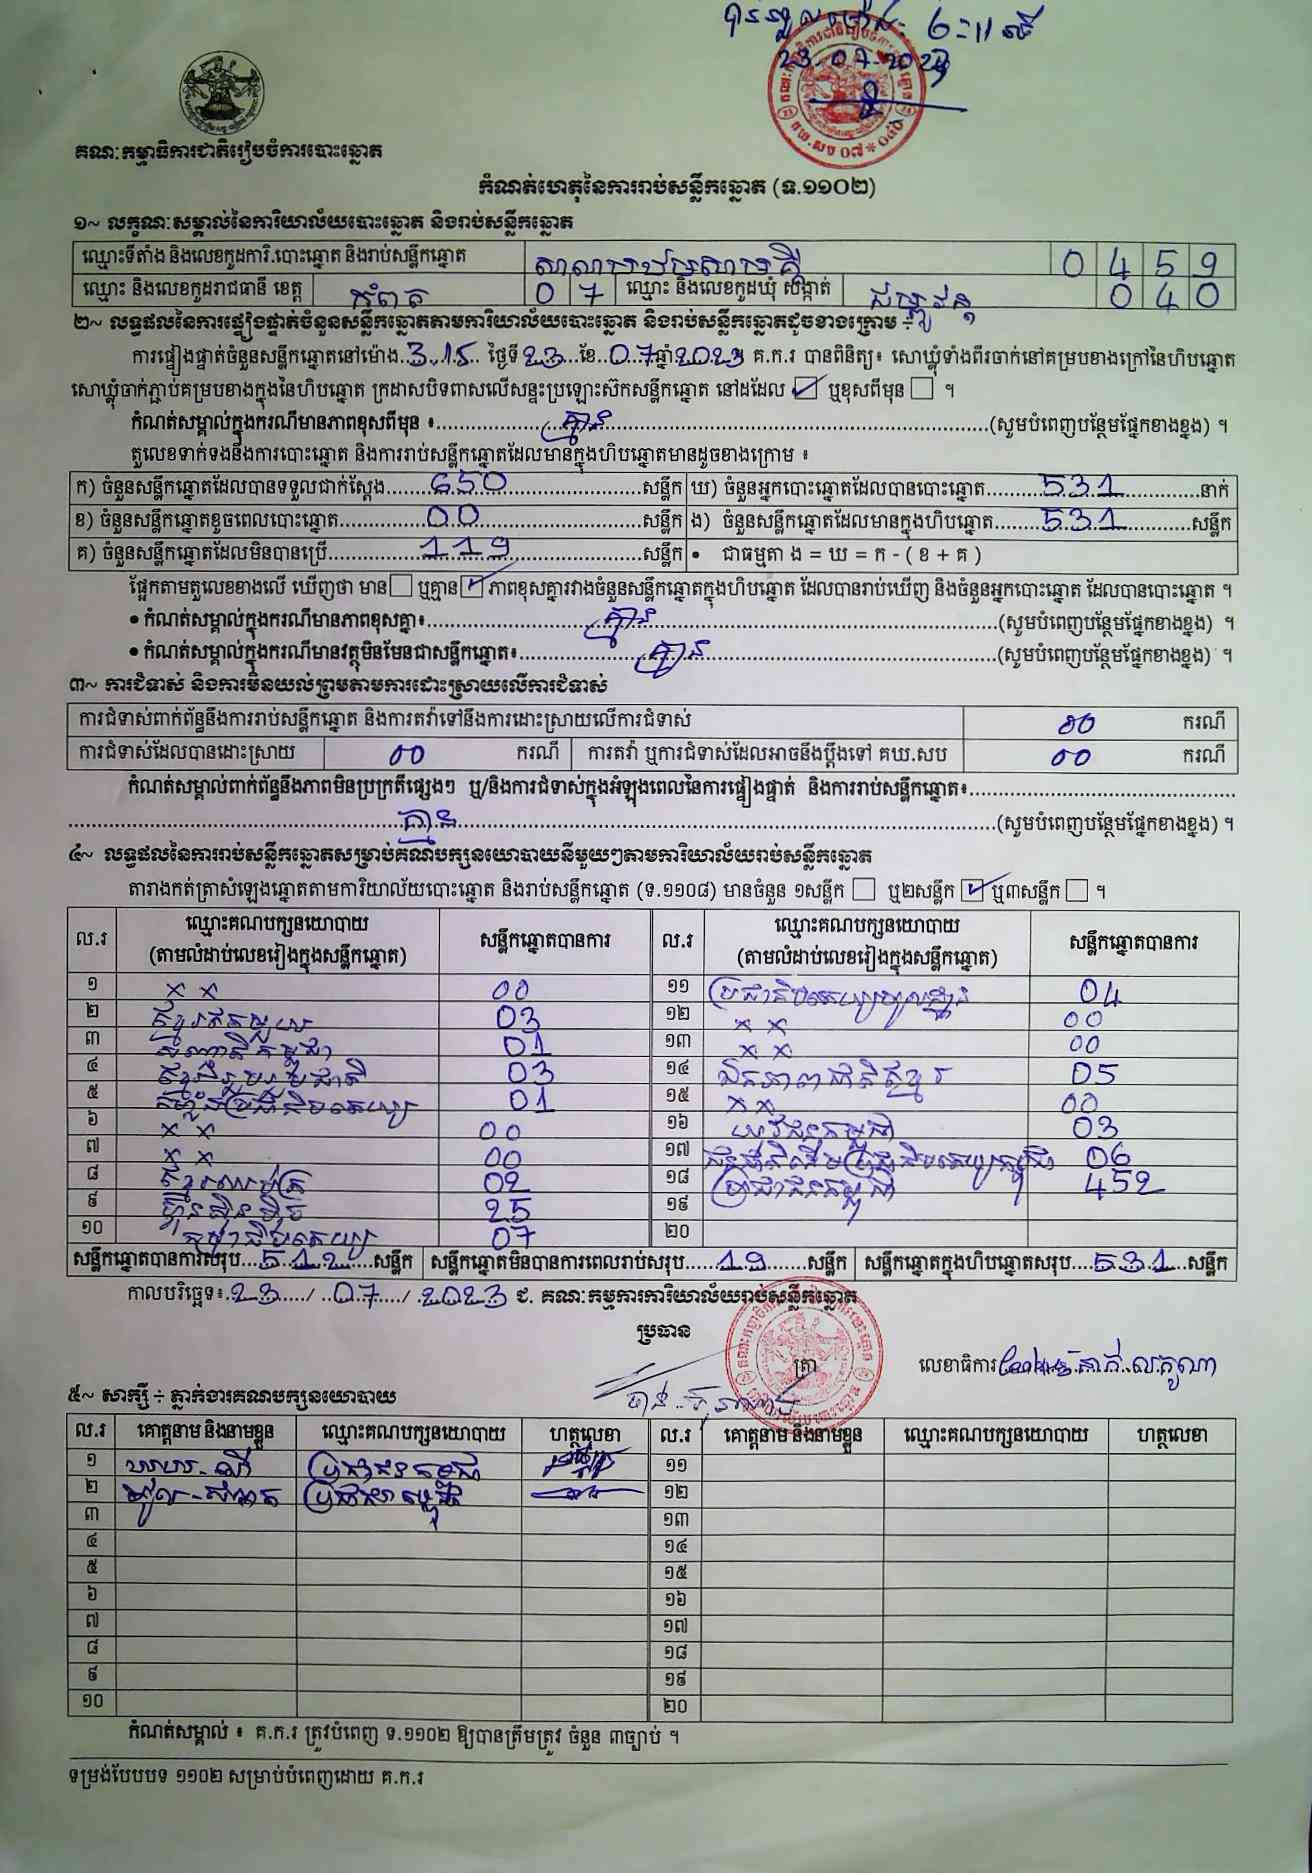 បានទទួលម៉ោង: ៦:11 នាទី
23-07-2023
គណៈកម្មាធិការជាតិរៀបចំការបោះឆ្នោត
កំណត់ហេតុនៃការរាប់សន្លឹកឆ្នោត (ទ.១១០២)
១~ លក្ខណៈសម្គាល់នៃការិយាល័យបោះឆ្នោត និងរាប់សន្លឹកឆ្នោត
ឈ្មោះទីតាំង និងលេខកូដការិ.បោះឆ្នោត និងរាប់សន្លឹកឆ្នោត 0 4 5 9
ឈ្មោះ និងលេខកូដរាជធានី ខេត្ត កំពត 0 7 ឈ្មោះ និងលេខកូដឃុំ សង្កាត់ 0 4 0
២~ លទ្ធផលនៃការផ្ទៀងផ្ទាត់ចំនួនសន្លឹកឆ្នោតតាមការិយាល័យបោះឆ្នោត និងរាប់សន្លឹកឆ្នោតដូចខាងក្រោម ÷
ការផ្ទៀងផ្ទាត់ចំនួនសន្លឹកឆ្នោតនៅម៉ោង 3:15 ថ្ងៃទី 23 ខែ 07 ឆ្នាំ 2023 គ.ក.រ បានពិនិត្យ៖ សោឃ្លុំទាំងពីរចាក់នៅគម្របខាងក្រៅនៃហិបឆ្នោត
សោឃ្លុំចាក់ភ្ជាប់គម្របខាងក្នុងនៃហិបឆ្នោត ក្រដាសបិទពាសលើសន្ទះប្រឡោះស៊កសន្លឹកឆ្នោត នៅដដែល ☑ ឬខុសពីមុន ☐ ។
កំណត់សម្គាល់ក្នុងករណីមានភាពខុសពីមុន ៖ គ្មាន (សូមបំពេញបន្ថែមផ្នែកខាងខ្នង) ។
តួលេខទាក់ទងនឹងការបោះឆ្នោត និងការរាប់សន្លឹកឆ្នោតដែលមានក្នុងហិបឆ្នោតមានដូចខាងក្រោម ៖
ក) ចំនួនសន្លឹកឆ្នោតដែលបានទទួលជាក់ស្តែង 650 សន្លឹក ឃ) ចំនួនអ្នកបោះឆ្នោតដែលបានបោះឆ្នោត 531 នាក់
ខ) ចំនួនសន្លឹកឆ្នោតខូចពេលបោះឆ្នោត 00 សន្លឹក ង) ចំនួនសន្លឹកឆ្នោតដែលមានក្នុងហិបឆ្នោត 531 សន្លឹក
គ) ចំនួនសន្លឹកឆ្នោតដែលមិនបានប្រើ 119 សន្លឹក • ជាធម្មតា ង = ឃ = ក - ( ខ + គ )
ផ្អែកតាមតួលេខខាងលើ ឃើញថា មាន ☐ ឬគ្មាន ☑ ភាពខុសគ្នារវាងចំនួនសន្លឹកឆ្នោតក្នុងហិបឆ្នោត ដែលបានរាប់ឃើញ និងចំនួនអ្នកបោះឆ្នោត ដែលបានបោះឆ្នោត ។
• កំណត់សម្គាល់ក្នុងករណីមានភាពខុសគ្នា៖ គ្មាន (សូមបំពេញបន្ថែមផ្នែកខាងខ្នង) ។
• កំណត់សម្គាល់ក្នុងករណីមានវត្ថុមិនមែនជាសន្លឹកឆ្នោត៖ គ្មាន (សូមបំពេញបន្ថែមផ្នែកខាងខ្នង) ។
៣~ ការជំទាស់ និងការមិនយល់ព្រមតាមការដោះស្រាយលើការជំទាស់
ការជំទាស់ពាក់ព័ន្ធនឹងការរាប់សន្លឹកឆ្នោត និងការតវ៉ាទៅនឹងការដោះស្រាយលើការជំទាស់ 00 ករណី
ការជំទាស់ដែលបានដោះស្រាយ 00 ករណី ការតវ៉ា ឬការជំទាស់ដែលអាចនឹងប្តឹងទៅ គឃ.សប 00 ករណី
កំណត់សម្គាល់ពាក់ព័ន្ធនឹងភាពមិនប្រក្រតីផ្សេងៗ ឬ/និងការជំទាស់ក្នុងអំឡុងពេលនៃការផ្ទៀងផ្ទាត់ និងការរាប់សន្លឹកឆ្នោត៖
គ្មាន (សូមបំពេញបន្ថែមផ្នែកខាងខ្នង) ។
៤~ លទ្ធផលនៃការរាប់សន្លឹកឆ្នោតសម្រាប់គណបក្សនយោបាយនីមួយៗតាមការិយាល័យរាប់សន្លឹកឆ្នោត
តារាងកត់ត្រាសំឡេងឆ្នោតតាមការិយាល័យបោះឆ្នោត និងរាប់សន្លឹកឆ្នោត (ទ.១១០៨) មានចំនួន ១សន្លឹក ☐ ឬ២សន្លឹក ☑ ឬ៣សន្លឹក ☐ ។
ល.រ ឈ្មោះគណបក្សនយោបាយ (តាមលំដាប់លេខរៀងក្នុងសន្លឹកឆ្នោត) សន្លឹកឆ្នោតបានការ ល.រ ឈ្មោះគណបក្សនយោបាយ (តាមលំដាប់លេខរៀងក្នុងសន្លឹកឆ្នោត) សន្លឹកឆ្នោតបានការ
១ x x 00 ១១ ប្រជាធិបតេយ្យមូលដ្ឋាន 04
២ ខ្មែរឥស្សរៈ 03 ១២ x x 00
៣ 01 ១៣ x x 00
៤ ខ្មែររួបរួមជាតិ 03 ១៤ ឯកភាពជាតិខ្មែរ 05
៥ កម្លាំងប្រជាធិបតេយ្យ 01 ១៥ x x 00
៦ x x 00 ១៦ យុវជនកម្ពុជា 03
៧ x x 00 ១៧ 06
៨ ខ្មែរឈប់ក្រ 02 ១៨ ប្រជាជនកម្ពុជា 452
៩ ហ្វ៊ុនស៊ិនប៉ិច 25 ១៩
១០ 07 ២០
សន្លឹកឆ្នោតបានការសរុប 512 សន្លឹក សន្លឹកឆ្នោតមិនបានការពេលរាប់សរុប 19 សន្លឹក សន្លឹកឆ្នោតក្នុងហិបឆ្នោតសរុប 531 សន្លឹក
កាលបរិច្ឆេទ៖ 23 / 07 / 2023 ជ. គណៈកម្មការការិយាល័យរាប់សន្លឹកឆ្នោត
ប្រធាន
ត្រា
លេខាធិការ
៥~ សាក្សី ÷ ភ្នាក់ងារគណបក្សនយោបាយ
ល.រ គោត្តនាម និងនាមខ្លួន ឈ្មោះគណបក្សនយោបាយ ហត្ថលេខា ល.រ គោត្តនាម និងនាមខ្លួន ឈ្មោះគណបក្សនយោបាយ ហត្ថលេខា
១ ប្រជាជនកម្ពុជា ១១
២ ១២
៣ ១៣
៤ ១៤
៥ ១៥
៦ ១៦
៧ ១៧
៨ ១៨
៩ ១៩
១០ ២០
កំណត់សម្គាល់ ៖ គ.ក.រ ត្រូវបំពេញ ទ.១១០២ ឱ្យបានត្រឹមត្រូវ ចំនួន ៣ច្បាប់ ។
ទម្រង់បែបបទ ១១០២ សម្រាប់បំពេញដោយ គ.ក.រ